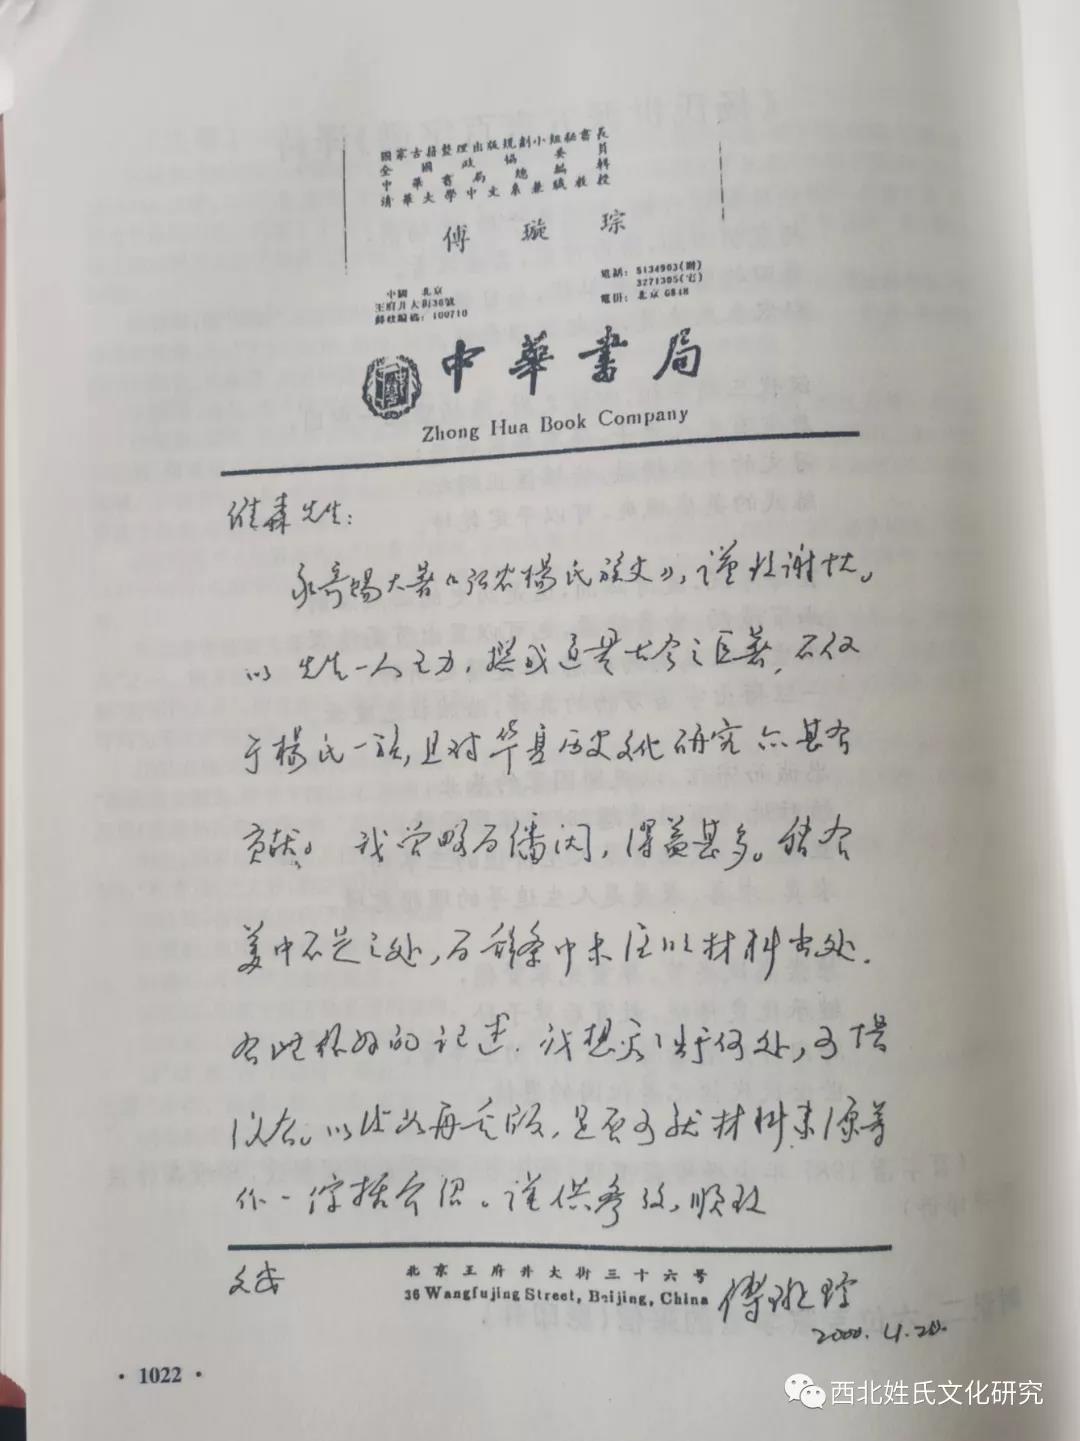 國家古籍整理出版規劃小組秘書長
全國政協委員
中華書局總編輯
清華大學中文系兼職教授
傅璇琮
中國 北京
王府井大街36號
郵政編碼：100710
電話：5134903(辦)
3271305(宅)
電掛：北京 6848
中華書局
Zhong Hua Book Company
维森先生：
承寄赐大著《弘农杨氏族史》，谨致谢忱。
以先生一人之力，撰成这是大今之巨著，不仅
于杨氏一族，且对华夏历史文化研究亦甚有
贡献。我曾略为翻阅，得益甚多。稍有
美中不足之处，为各条中未注以材料出处。
有些很好的记述，我想知道出于何处，可惜
以后如再重版，是否可就材料来源等
作一综括介绍。谨供参考，顺致
文安
北京王府井大街三十六号
36 Wangfujing Street, Beijing, China
傅璇琮
2000.4.20.
· 1022 ·
西北姓氏文化研究